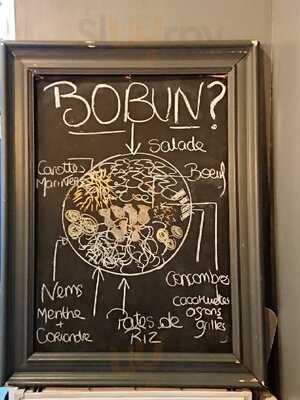 BOBUN?
Salade
Carottes
Marinées
Boeuf
Nems
Menthe
+
Coriandre
Pates de
RIZ
Concombres
cacahuetes
ognons
grillés